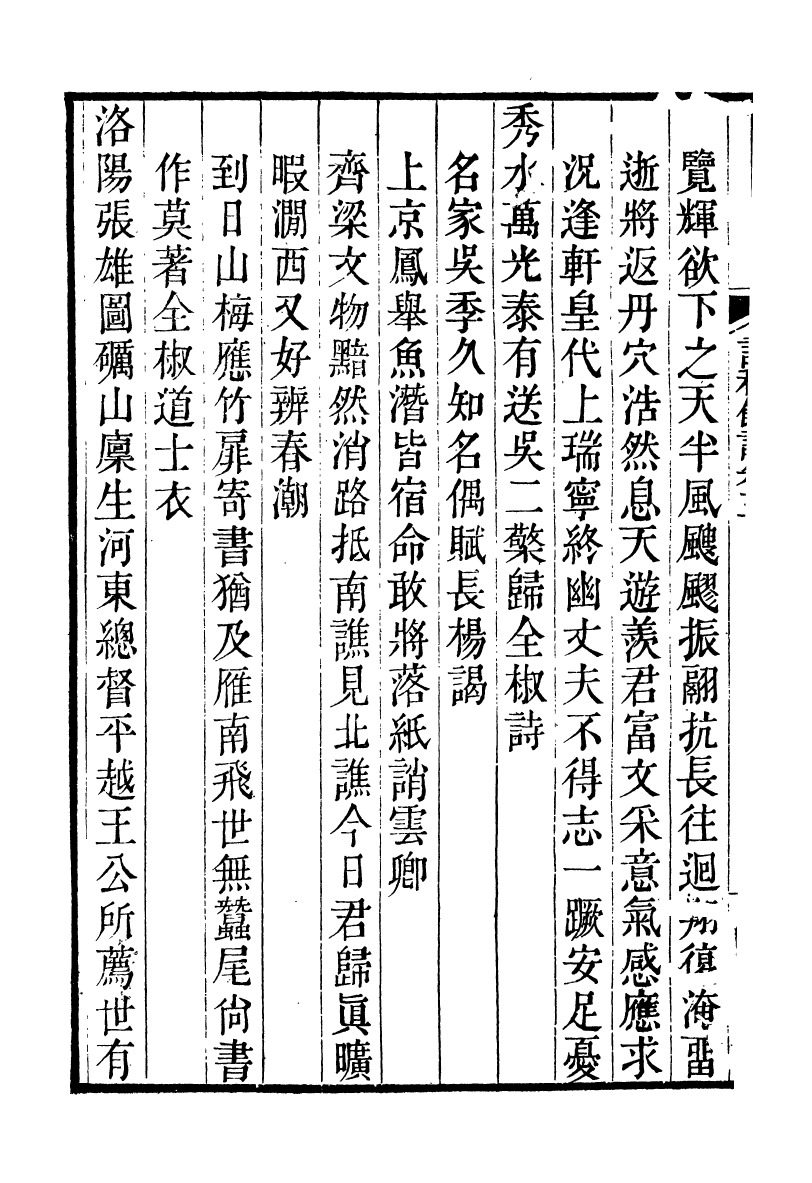 覽輝欲下之天半風颼飂振翮抗長往迴翔復淹畱
逝將返丹穴浩然息天遊羨君富文采意氣感應求
況逢軒皇代上瑞寧終幽丈夫不得志一蹶安足憂
秀水萬光泰有送吳二檠歸全椒詩
名家吳季久知名偶賦長楊謁
上京鳳舉魚潛皆宿命敢將落紙誚雲卿
齊梁文物黯然消路抵南譙見北譙今日君歸眞曠
暇澗西又好辨春潮
到日山梅應竹扉寄書猶及雁南飛世無蠶尾尙書
作莫著全椒道士衣
洛陽張雄圖礪山廩生河東總督平越王公所薦世有